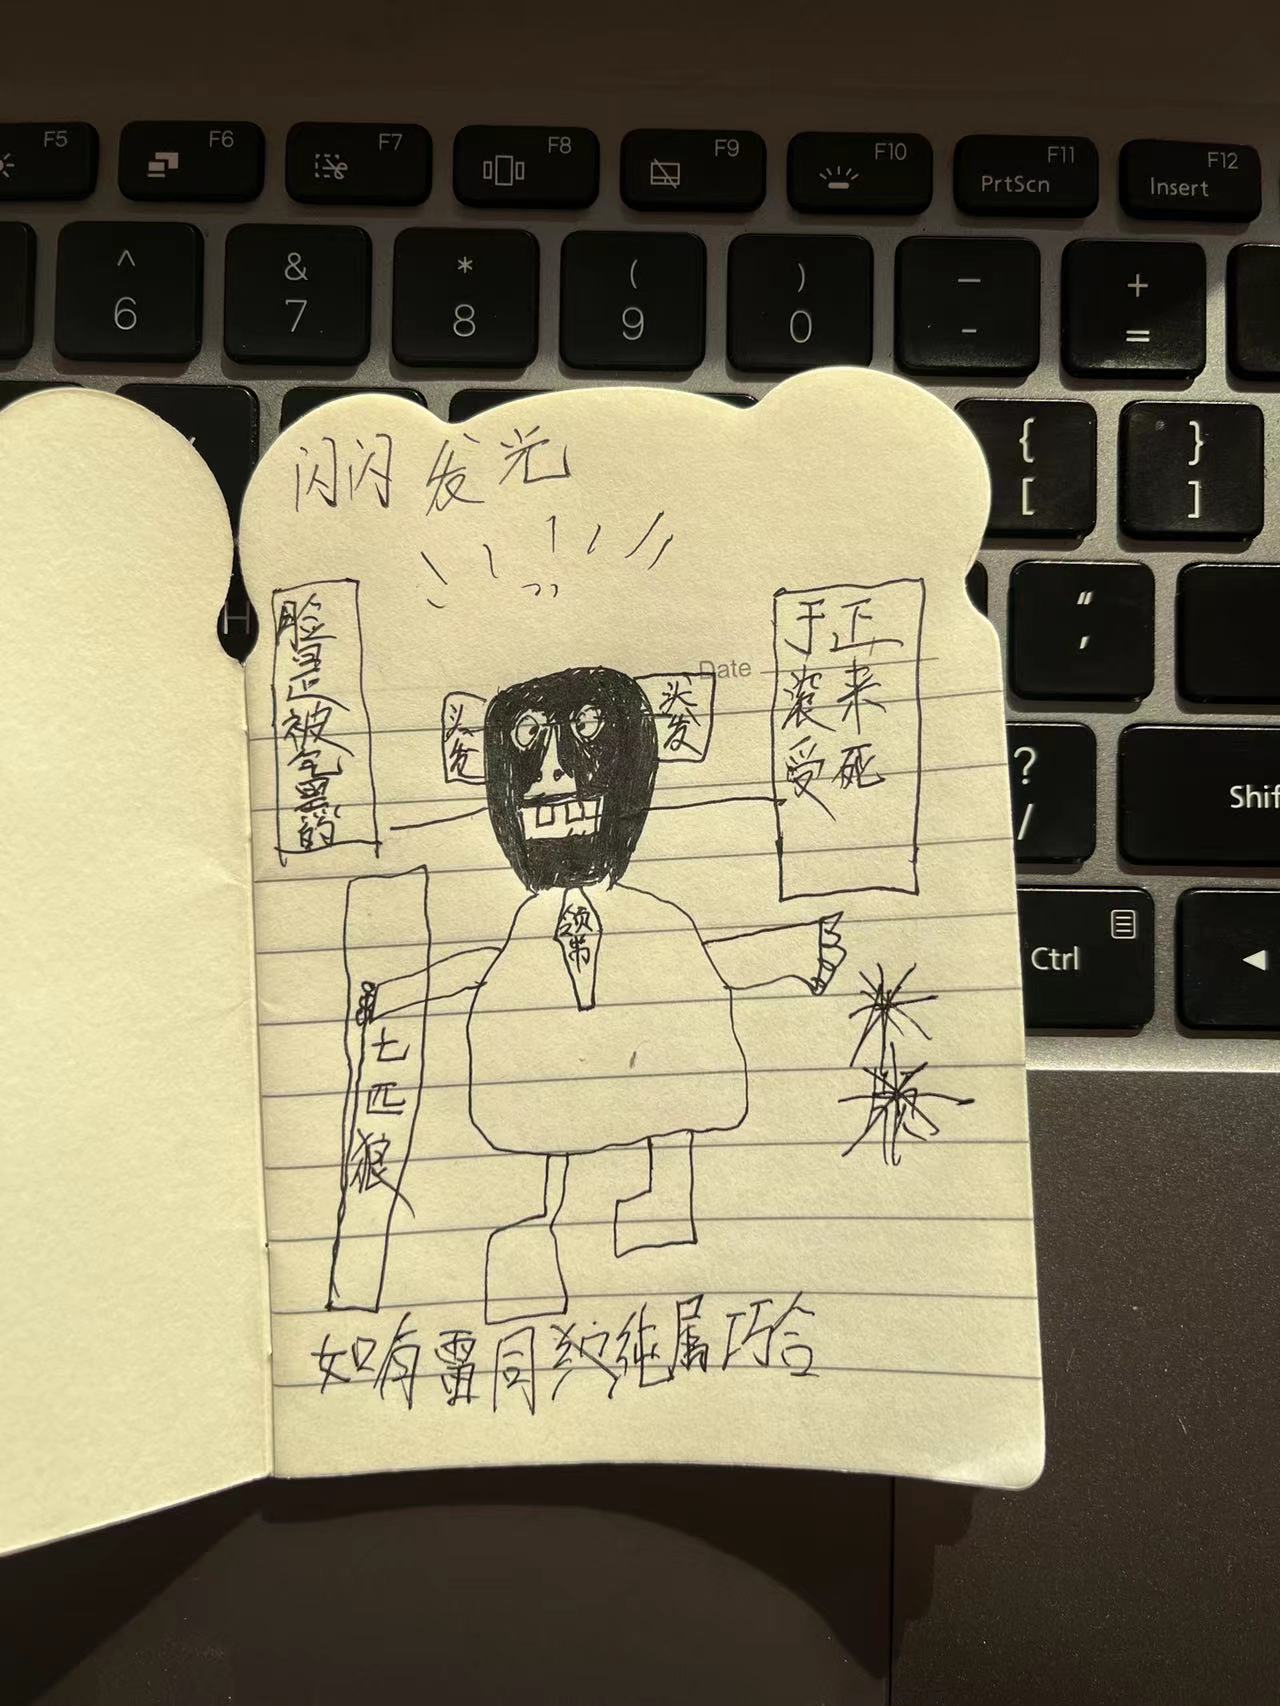 F5
F6
F7
F8
F9
F10
F11
PrtScn
F12
Insert
^
6
&
7
*
8
(
9
)
0
—
-
+
=
{
[
}
]
“
,
?
/
Shif
Ctrl
H
闪闪发光
Date
脸
正被
黑的
头发
头发
于正
滚来
受死
领带
七匹狼
如有雷同 纯属巧合